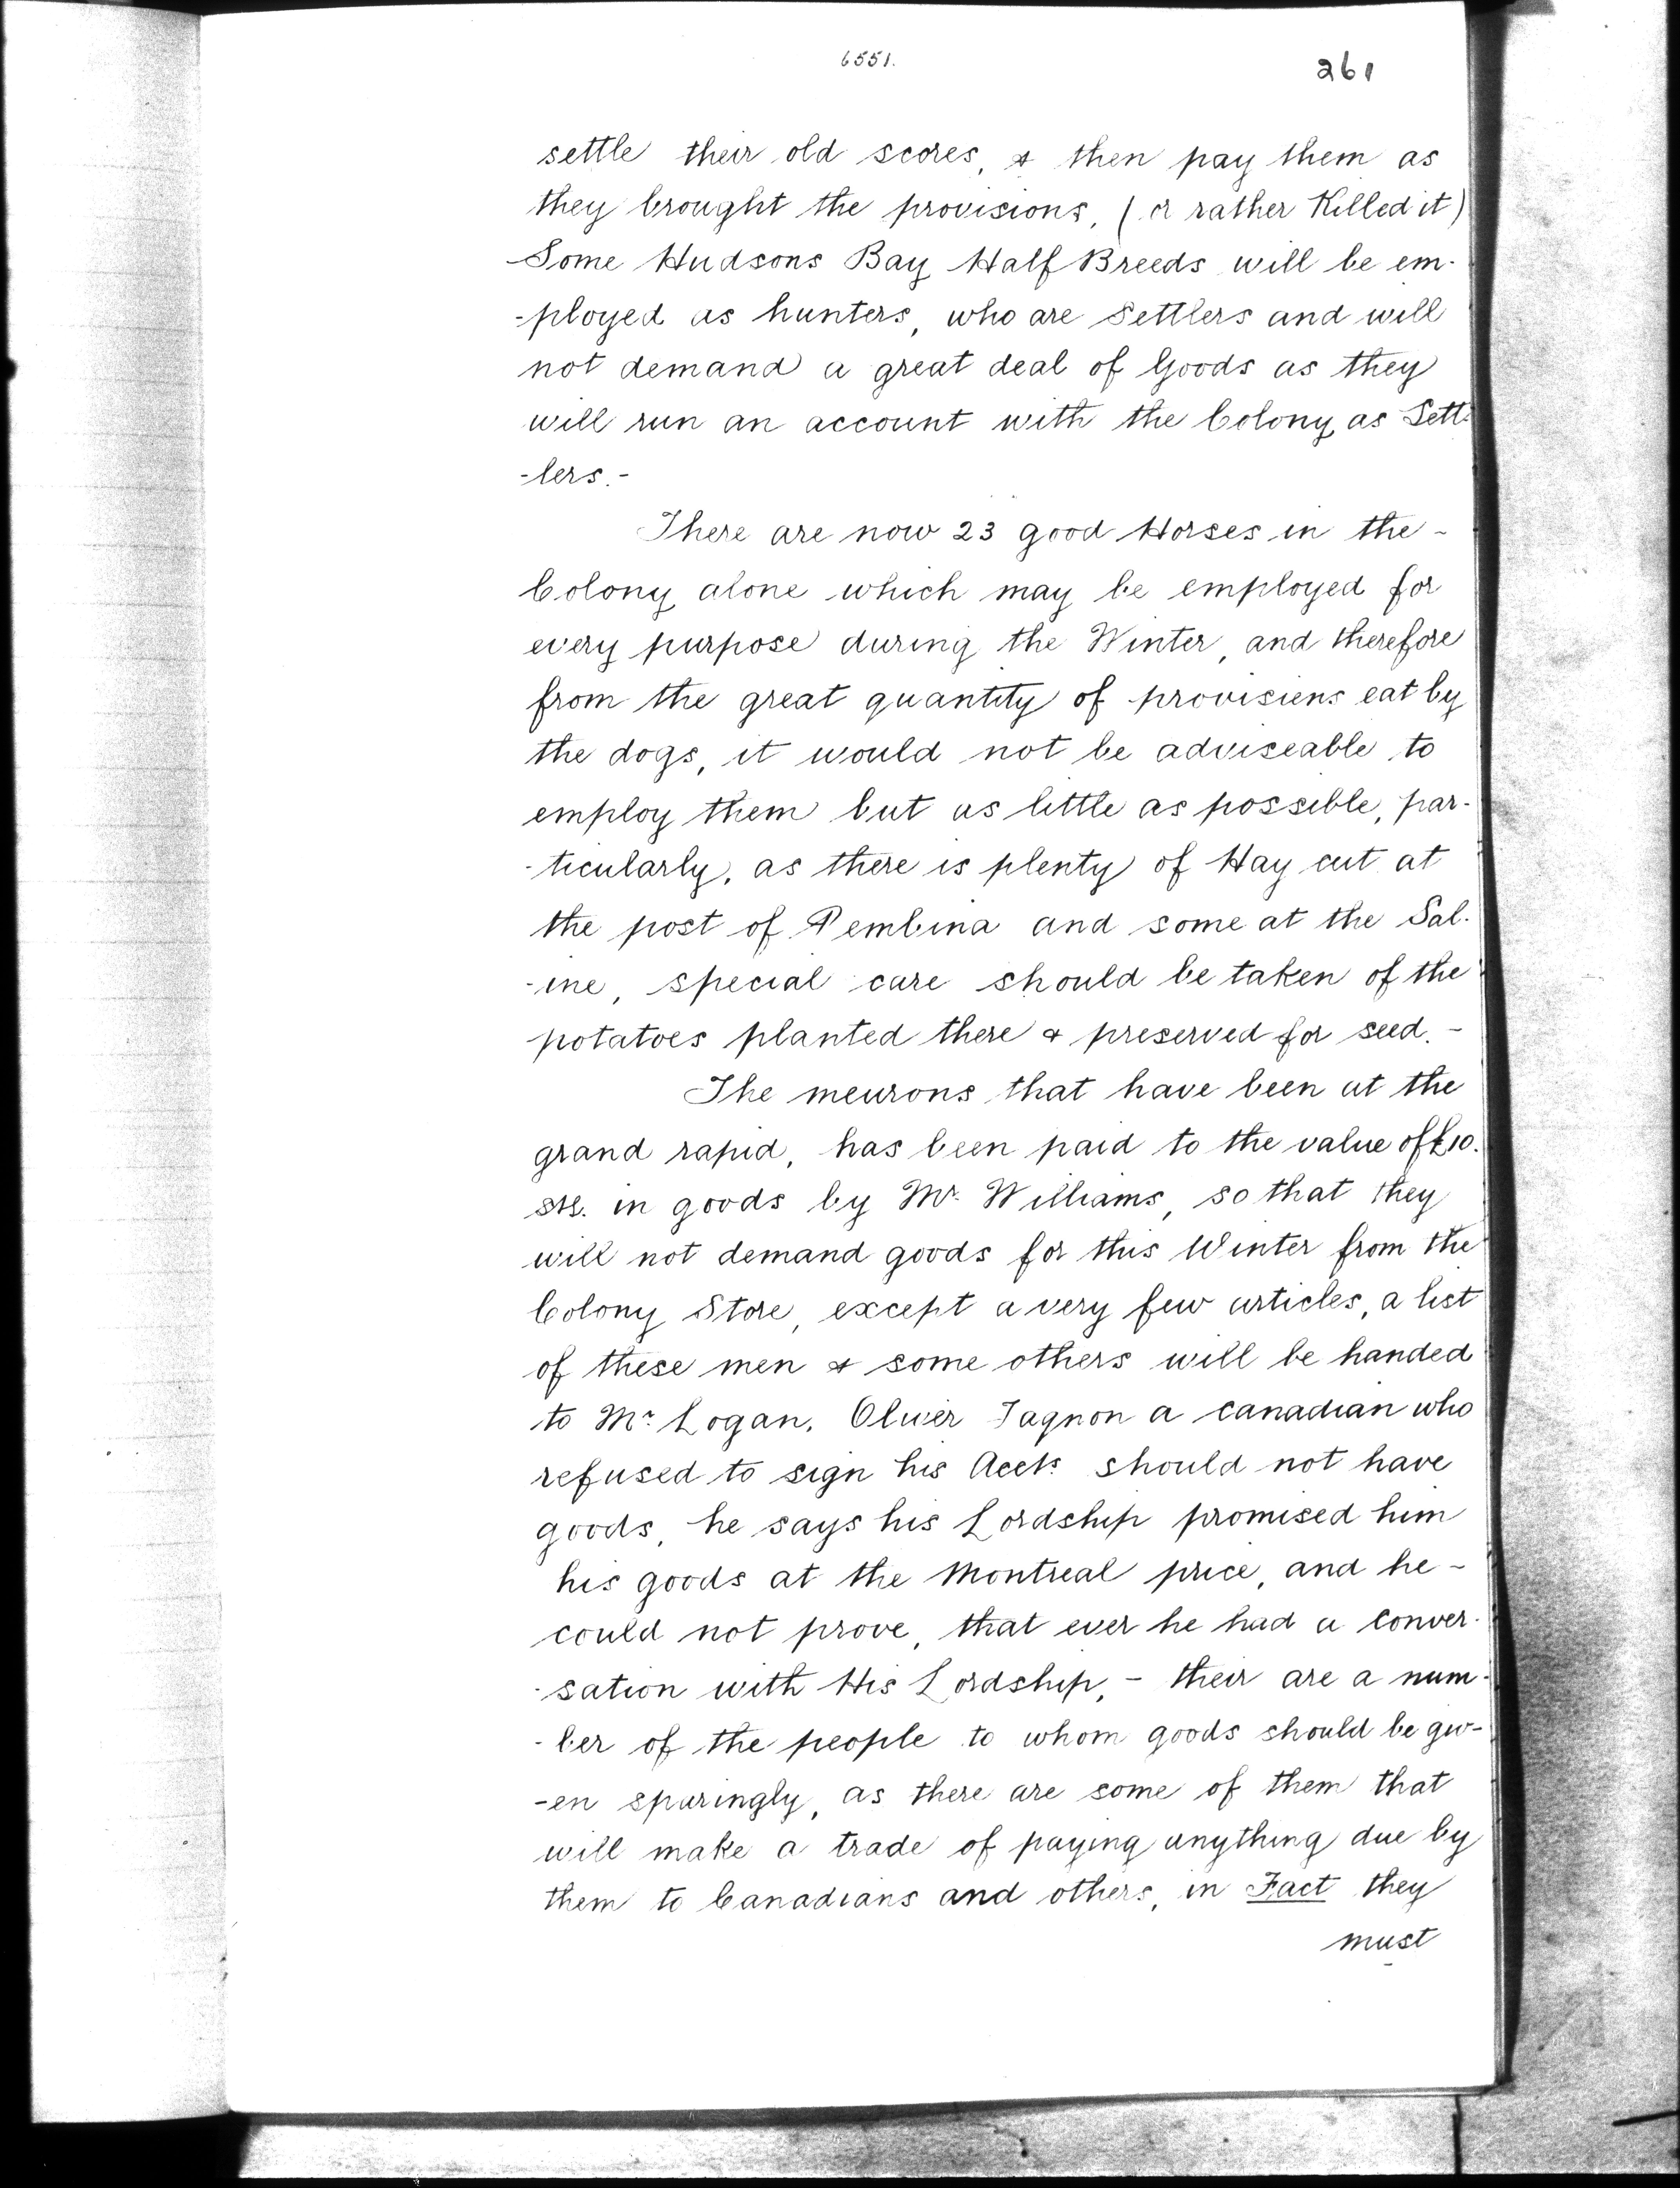 6551.
261
settle their old scores, & then pay them as
they brought the provisions, (or rather Killed it)
Some Hudsons Bay Half Breeds will be em-
-ployed as hunters, who are Settlers and will
not demand a great deal of Goods as they
will run an account with the Colony as Sett-
-lers. -
There are now 23 good Horses in the -
Colony alone which may be employed for
every purpose during the Winter, and therefore
from the great quantity of provisions eat by
the dogs, it would not be adviseable to
employ them but as little as possible, par-
-ticularly, as there is plenty of Hay cut at
the post of Pembina and some at the Sal-
-ine, special care should be taken of the
potatoes planted there & preserved for seed. -
The meurons that have been at the
grand rapid, has been paid to the value of £10.
stg. in goods by Mr. Williams, so that they
will not demand goods for this Winter from the
Colony Store, except a very few articles, a list
of these men & some others will be handed
to Mr. Logan. Oliver Tagnon a canadian who
refused to sign his Accts. should not have
goods, he says his Lordship promised him
his goods at the Montreal price, and he -
could not prove, that ever he had a conver-
-sation with His Lordship, - their are a num-
-ber of the people to whom goods should be giv-
-en sparingly, as there are some of them that
will make a trade of paying anything due by
them to Canadians and others, in Fact they
must